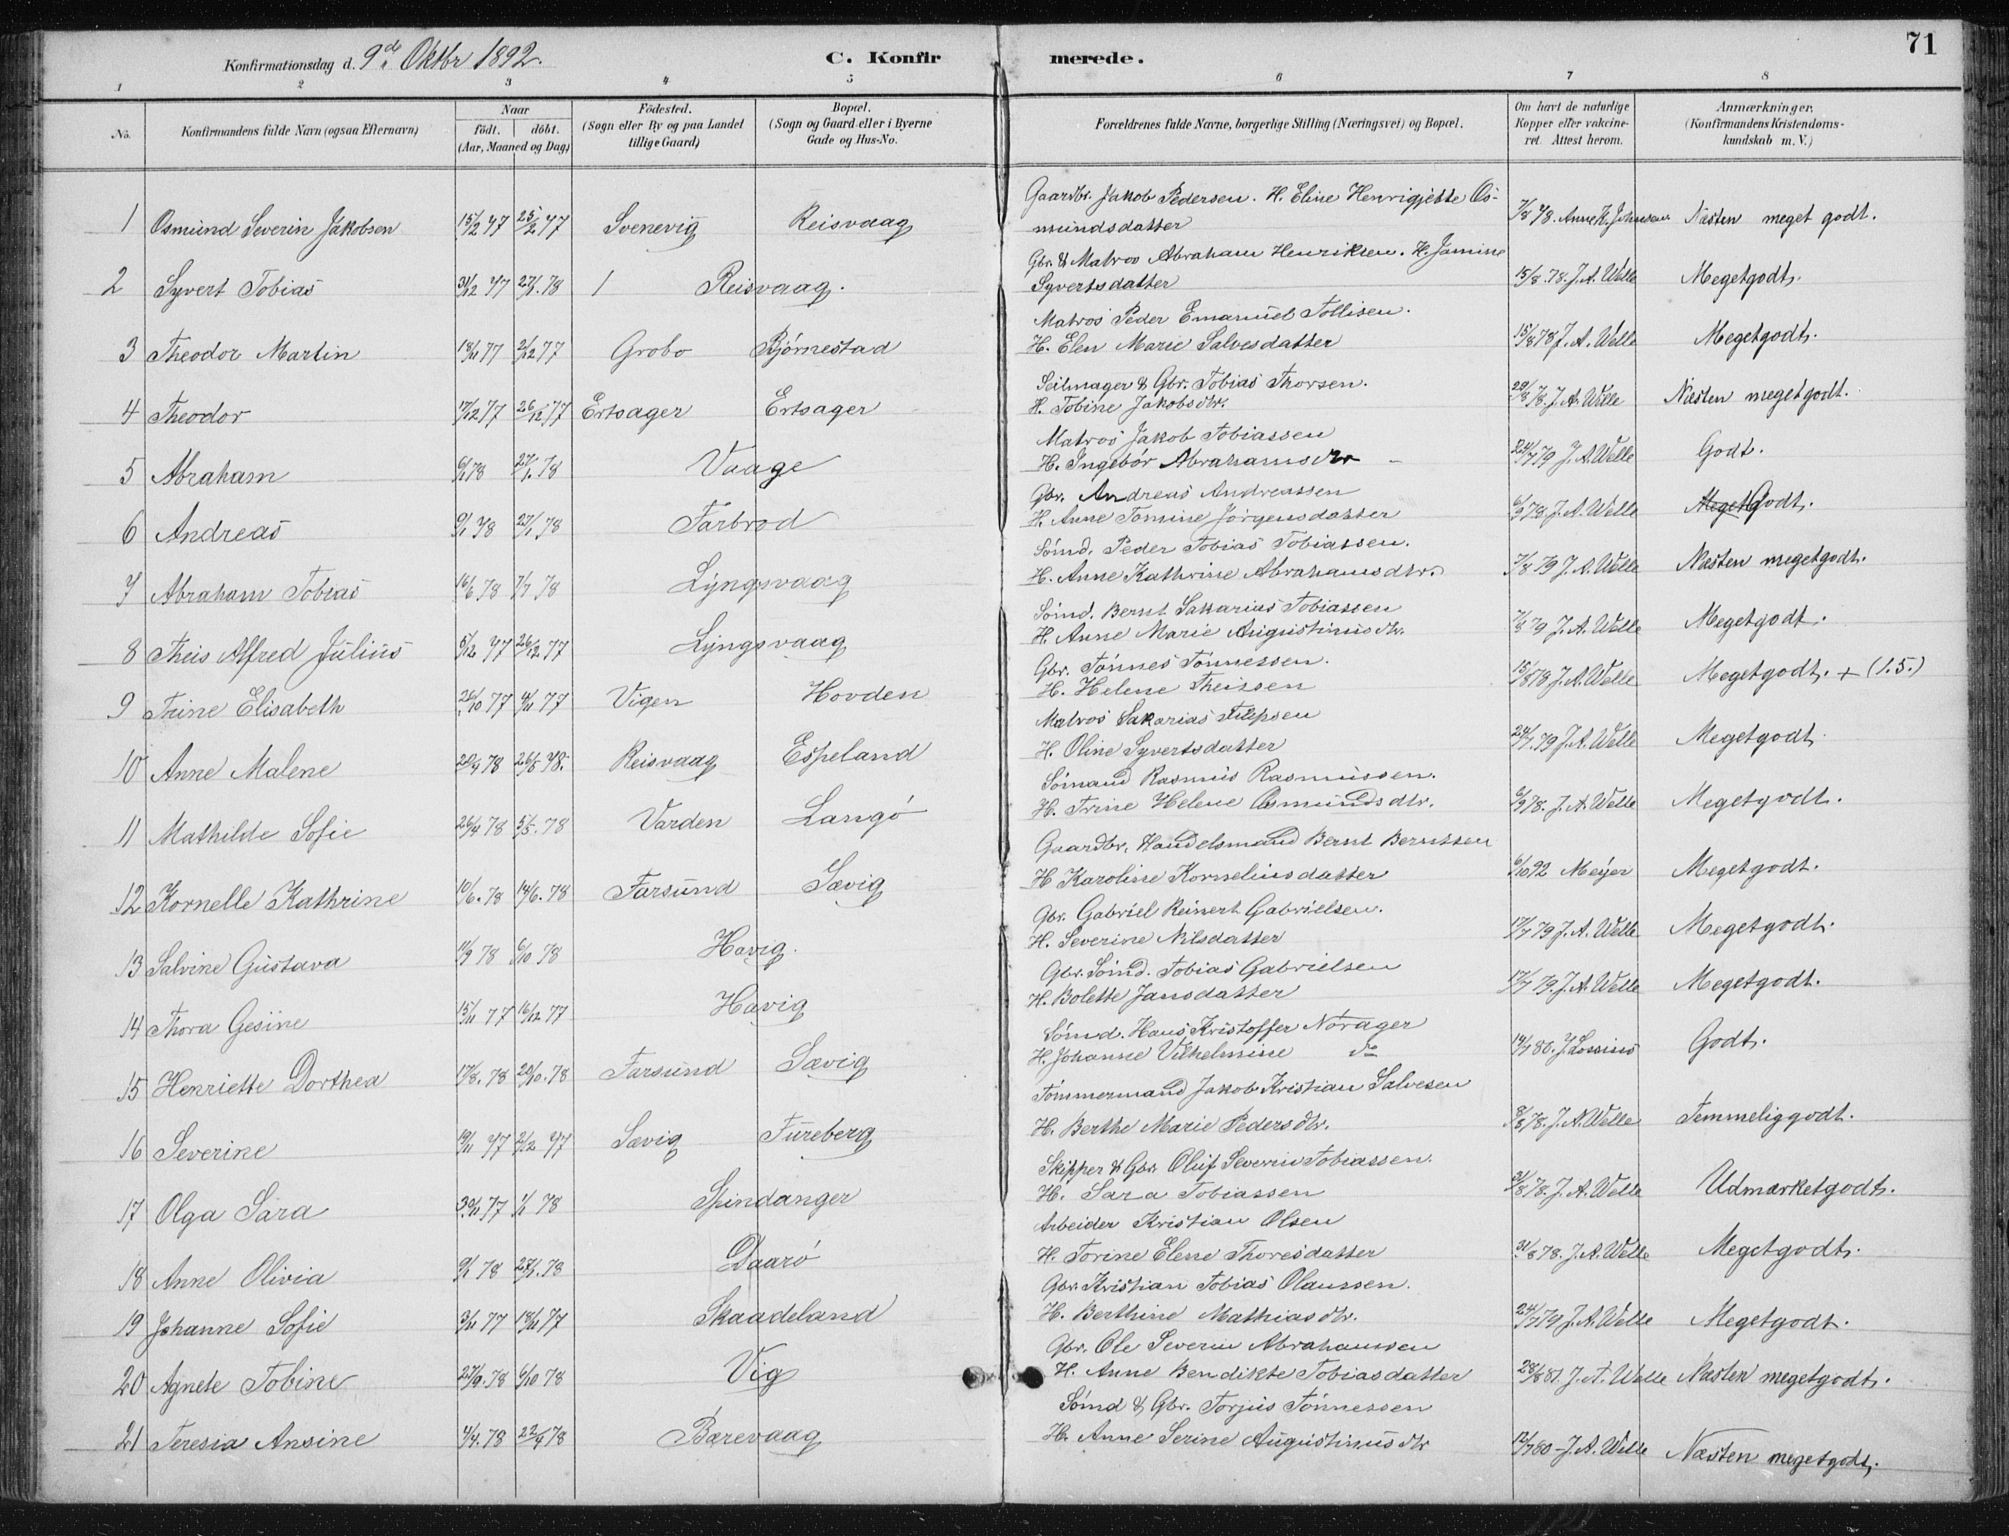 71
Konfirmationsdag d. 9de Oktbr 1892.
C. Konfirmerede.
1 2 3 4 5 6 7 8
No.
Konfirmandens fulde Navn (ogsaa Efternavn)
Naar
födt. döbt.
(Aar, Maaned og Dag)
Födested.
(Sogn eller By og paa Landet
tillige Gaard)
Bopæl.
(Sogn og Gaard eller i Byerne
Gade og Hus-No.
Forældrenes fulde Navne, borgerlige Stilling (Næringsvei) og Bopæl.
Om havt de naturlige
Kopper eller vakcine-
ret. Attest herom.
Anmærkninger.
(Konfirmandens Kristendoms-
kundskab m. V.)
1 Osmund Severin Jakobsen 15/12 77 25/12 77 Svenevig Reisvaag Gaardbr. Jakob Pedersen. H. Eline Henrigjette Os-
mundsdatter 7/8 78. Anne K. Johnsen Næsten meget godt.
2 Syvert Tobias 31/12 77 27/1 78 Reisvaag. Gbr. & Matros Abraham Henriksen. H. Jamine
Syvertsdatter 15/8. 78. J. A. Welle Megetgodt.
3 Theodor Martin 18/11 77 2/12 77 Grobo Bjørnestad Matros Peder Emanuel Tollisen.
H. Elen Marie Salvesdatter 15/8 78 J. A. Welle Megetgodt.
4 Theodor 17/12 77 26/12 77 Ertsager Ertsager Seilmager & Gbr. Tobias Thorsen.
H. Tobine Jakobsdtr. 20/8 78. J. A. Welle Næsten megetgodt.
5 Abraham 6/1 78 27/1. 78 Vaage Matros Jakob Tobiassen
H. Ingebór Abrahamsdtr 24/7 79 J. A. Welle Godt.
6 Andreas 9/1 78 27/1 78 Farbrod Gbr. Andreas Andreassen
H. Anne Tomine Jörgensdatter 6/9 78. J. A. Welle Meget Godt.
7 Abraham Tobias 16/6 78 7/7 78 Lyngsvaag Sömd. Peder Tobias Tobiassen.
H. Anne Kathrine Abrahamsdtr. 7/8 79 J. A. Welle Næsten megetgodt.
8 Theis Alfred Julius 5/12 77 26/12 77 Lyngsvaag Sömd. Bernt Sakarias Tobiassen
H. Anne Marie Augustinusdtr. 7/8 79 J. A. Welle Megetgodt.
9 Trine Elisabeth 26/10 77 4/11 77 Vigen Hovden Gbr. Tönnes Tönnessen.
H. Helene Theissen 15/8 78 J. A. Welle Megetgodt. + (1.5.)
10 Anne Malene 20/4 78 26/5 78. Reisvaag Espeland Matros Sakarias Filepsen
H. Oline Syvertsdatter 24/7. 79 J. A. Welle Megetgodt
11 Mathilde Sofie 26/4 78 5/5. 78 Varden Langö Sömand Rasmus Rasmussen.
H. Trine Helene Osmundsdtr. 6/9 78. J. A. Welle Megetgodt.
12 Kornelle Kathrine 10/6. 78 14/6. 78 Farsund Sævig Gaardbr. Handelsmand Bernt Berntsen
H Karoline Korneliusdatter 6/10 92 Meyer Megetgodt.
13 Salvine Gustava 11/9 78 6/10 78 Havig. Gbr. Gabriel Reinert Gabrielsen.
H. Severine Nilsdatter 17/7 79 J. A. Welle Megetgodt.
14 Thora Gesine 15/11 77 16/12 77 Havig Gbr. Sömd. Tobias Gabrielsen
H. Bolette Jansdatter 17/7 79. J. A. Welle Megetgodt.
15 Henriette Dorthea 17/8. 78 20/10. 78 Farsund Sævig Sömd. Hans Kristoffer Nörager
H. Johanne Vilhelmine do 14/7 80. Godt.
16 Severine 19/11 77 2/12 77 Sævig Fureberg Tömmermand Jakob Kristian Salvesen
H. Berthe Marie Pedersdtr. 8/8 78. J. A. Welle Temmeliggodt.
17 Olga Sara 30/11 77 1/1 78 Spindanger Skipper & Gbr. Oluf Severin Tobiassen.
H. Sara Tobiassen 31/8 78. J. A. Welle Udmærketgodt.
18 Anne Olivia 9/1 78 27/1. 78 Daarö Arbeider Kristian Olsen
H. Torine Elene Thoresdatter 31/8 78. J. A. Welle Megetgodt.
19 Johanne Sofie 3/11 77 18/11 77 Skaadeland Gbr. Kristian Tobias Olaussen.
H. Berthine Mathiasdtr. 24/7 79 J. A. Welle Megetgodt.
20 Agnete Tobine 27/9. 78 6/10 78 Vig Gbr. Ole Severin Abrahamsen
H. Anne Bendikte Tobiasdatter 28/8 81. J. A. Welle Næsten megetgodt.
21 Teresia Ansine 4/4. 78 22/4 78 Barevaag Sömd & Gbr. Torjus Tönnessen
H. Anne Serine Augustinusdtr 12/7 80 - J. A. Welle Næsten megetgodt.